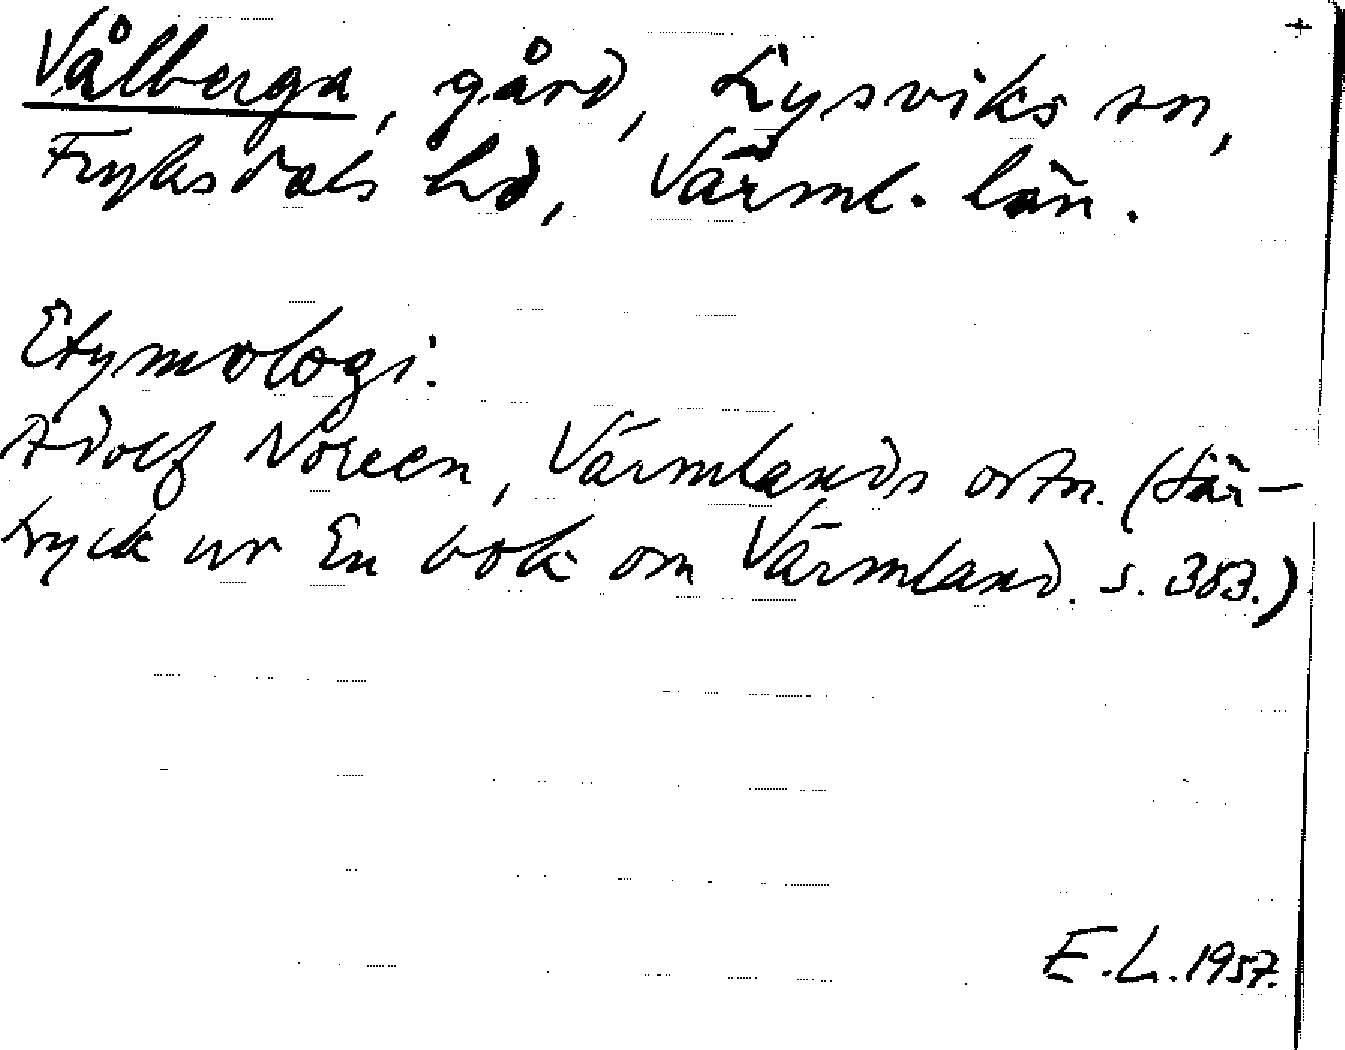 Vålberga, gård, Lysviks sn,
Fryksdals hd, Värml. län.
Etymologi:
Adolf Noreen, Värmlands ortn. (Sär-
tryck ur En bok om Värmland. s. 383.)
E.L. 1957.